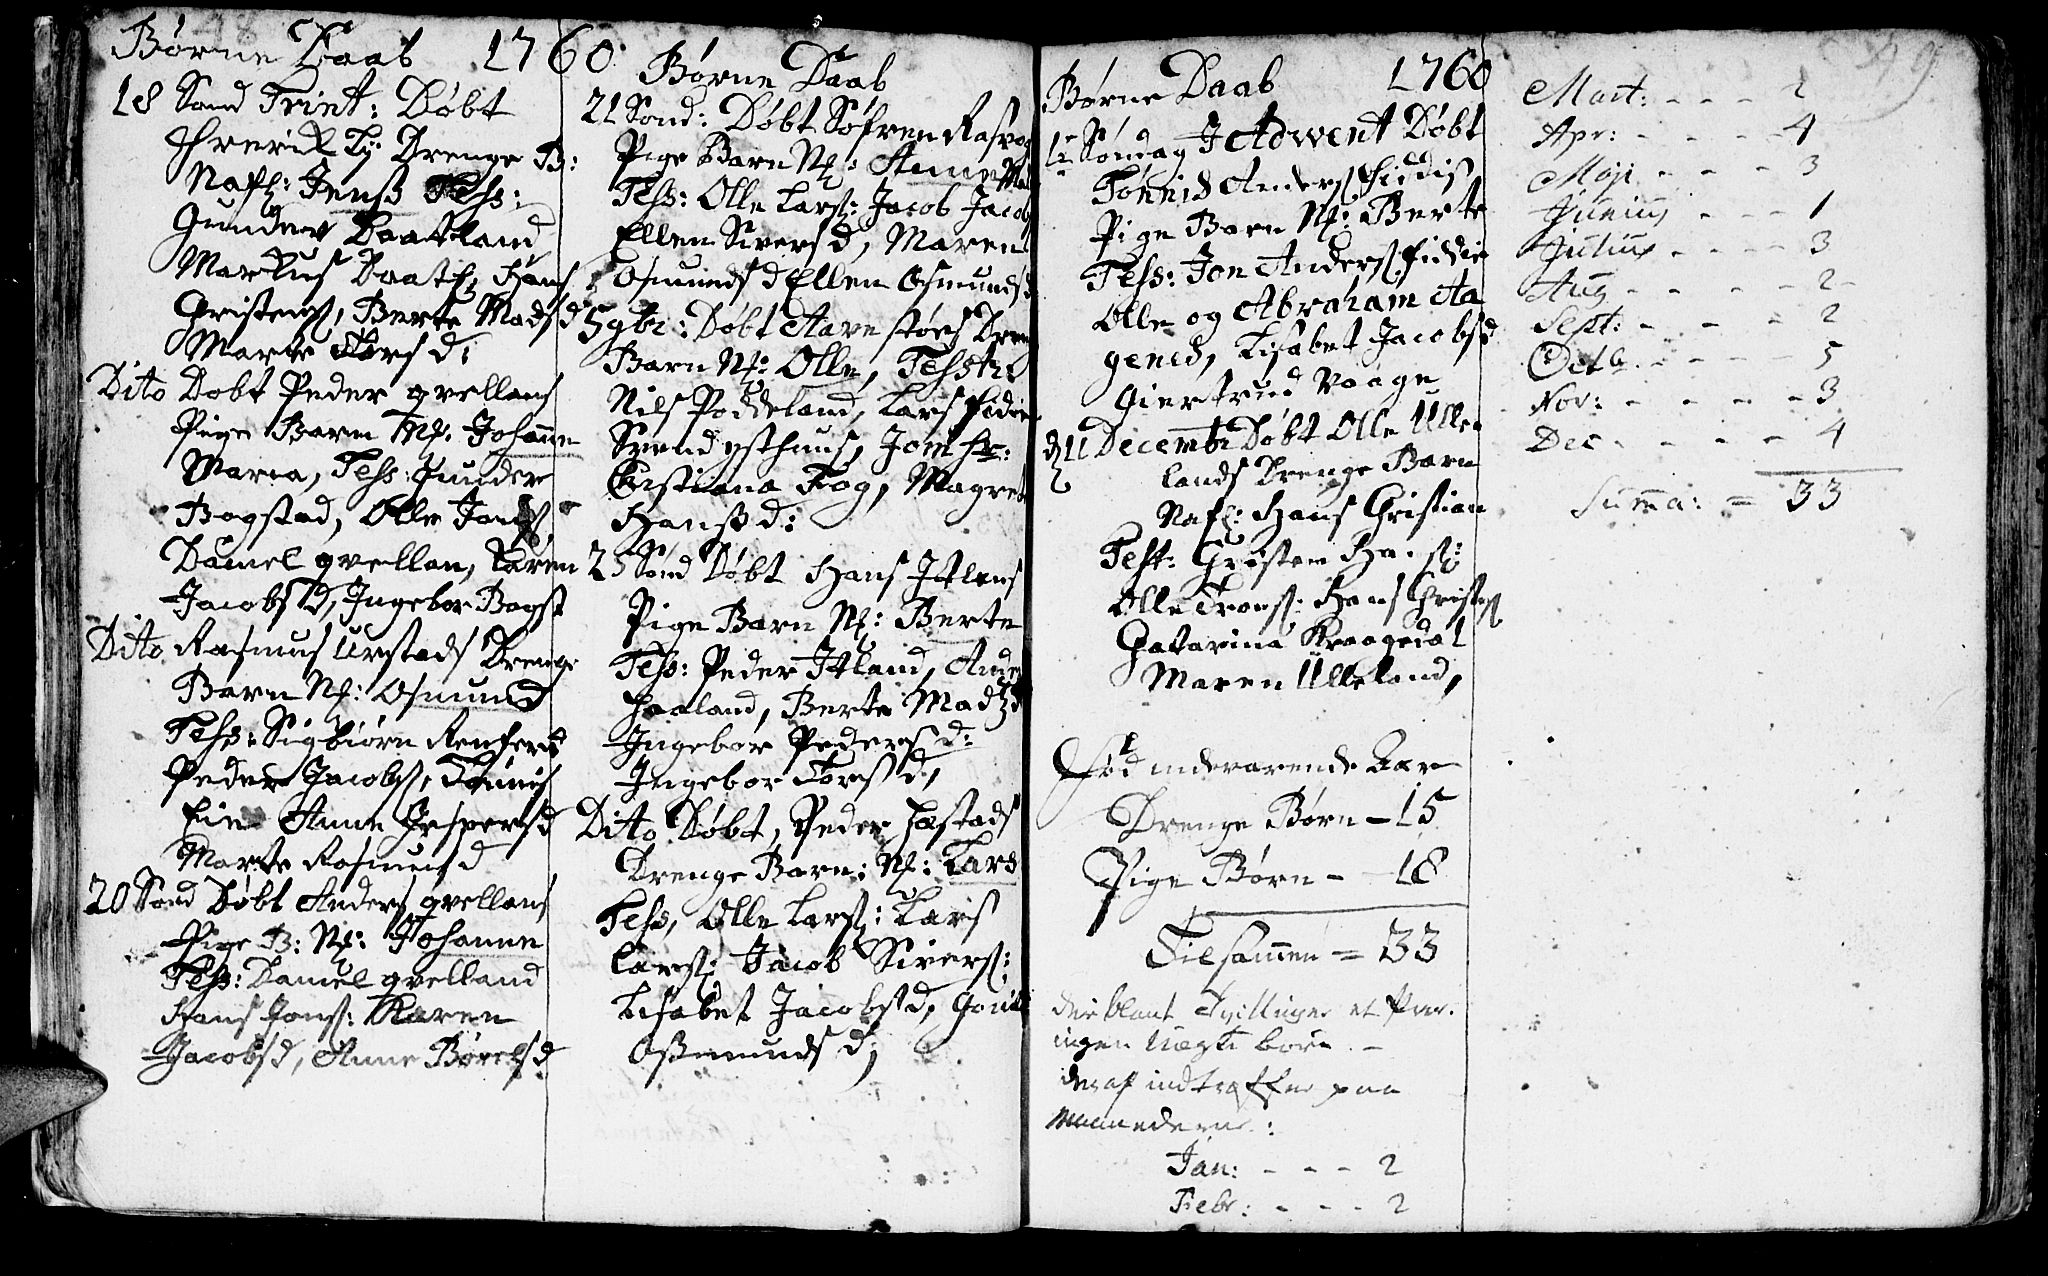 Børne Daab 1760
18 Sond Trinit: Døbt
Frerick Ly Drenge B:
Nafl: Jens Tess:
Gunder Daatland
Markus Daatl, Hans
Christens, Berte Madsd
Marte Larsd:
Dito Døbt Peder qvellans
Pige Barn Nf. Johanne
Maria, Tess: Gunder
Bogstad, Olle Jons,
Daniel qvellan, Karen
Jacobsd, Ingebor Bogst
Dito Rasmus Urstads Drenge
Barn Nf: Osmund
Tess: Sigbiørn
Peder Jacobs, Tønnis
Lie Anne Jespersd
Marte Rasmusd
20 Sond Døbt Anders qvellans
Pige B: Nf: Johanne
Tess: Daniel qvelland
Hans Jons: Karen
Jacobsd, Anne Børelsd
Børne Daab
21 Sond: Døbt Søfren
Pige Barn Nf: Anne
Tess: Olle Lars: Jacob Jacob
Ellen Siversd, Maren
Osmundsd Ellen Osmundsd
Døbt Aave Drenge
Barn Nf: Olle, Tess
Nils Poddeland, Lars
Svend ysthuus, Jom
Cristiana Fog, Magret
Hansd:
25 Sond Døbt Hans Itlens
Pige Barn Nf: Berte
Tess: Peder Itland, Ander
Haaland, Berte Madzd
Ingebor Pedersd:
Ingebor Torsd,
Dito Døbt, Peder Hæstads
Drenge Barn: Nf: Lars
Tess, Olle Lars: Lars
Lars: Jacob Sivers:
Lisabet Jacobsd,
Osmundsd;
Børne Daab 1760
Søndag I Advent Døbt
Tønnis Anders Fiddis
Pige Barn Nf: Berte
Tess: Jon Anders Fiddie
Olle og Abraham Aa
genes, Lisabet Jacobsd
Giertrud Vaage
d 11 Decembr Døbt Olle Ulle
lands Drenge Barn
Nafl: Hans Christian
Test: Christen
Olle Hans Christens
Catarina Kraagedal
Maren Ulleland,
Fød indeværende Aar
Drenge Børn - 15
Pige Børn - 18
Tilsammen = 33
der iblant Tvillinger et Par.
ingen uægte børn -
deraf indtræffer paa
Maanederne:
Jan: - - - 2
Febr: - - - 2
49
Mart: - - - 2
Apr: - - - - 4
Maji - - - 3
Junius - - - 1
Julius - - - - 3
Aug - - - - 2 -
Sept: - - - 2
Octb - - - - 5
Nov: - - - - 3
Dec - - - - 4
Summa: = 33